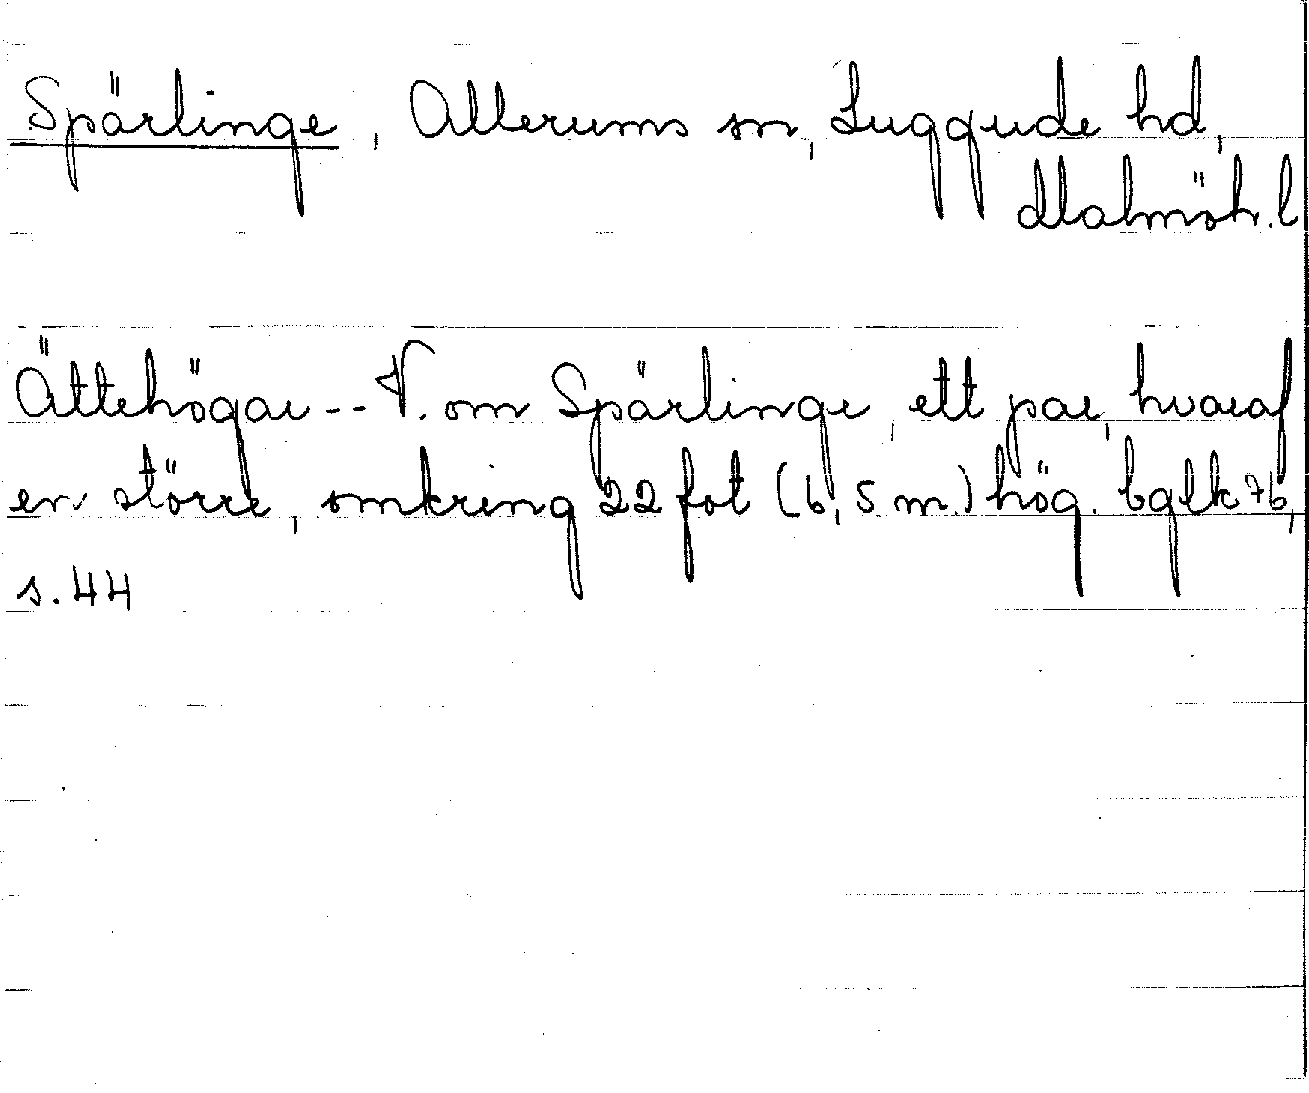 Spärlinge, Allerums sn, Luggude hd,
Malmöh. l
Ättehögar -- V. om Spärlinge, ett par, hvaraf
en större, omkring 22 fot (6,5 m.) hög. bglk 76,
s. 44